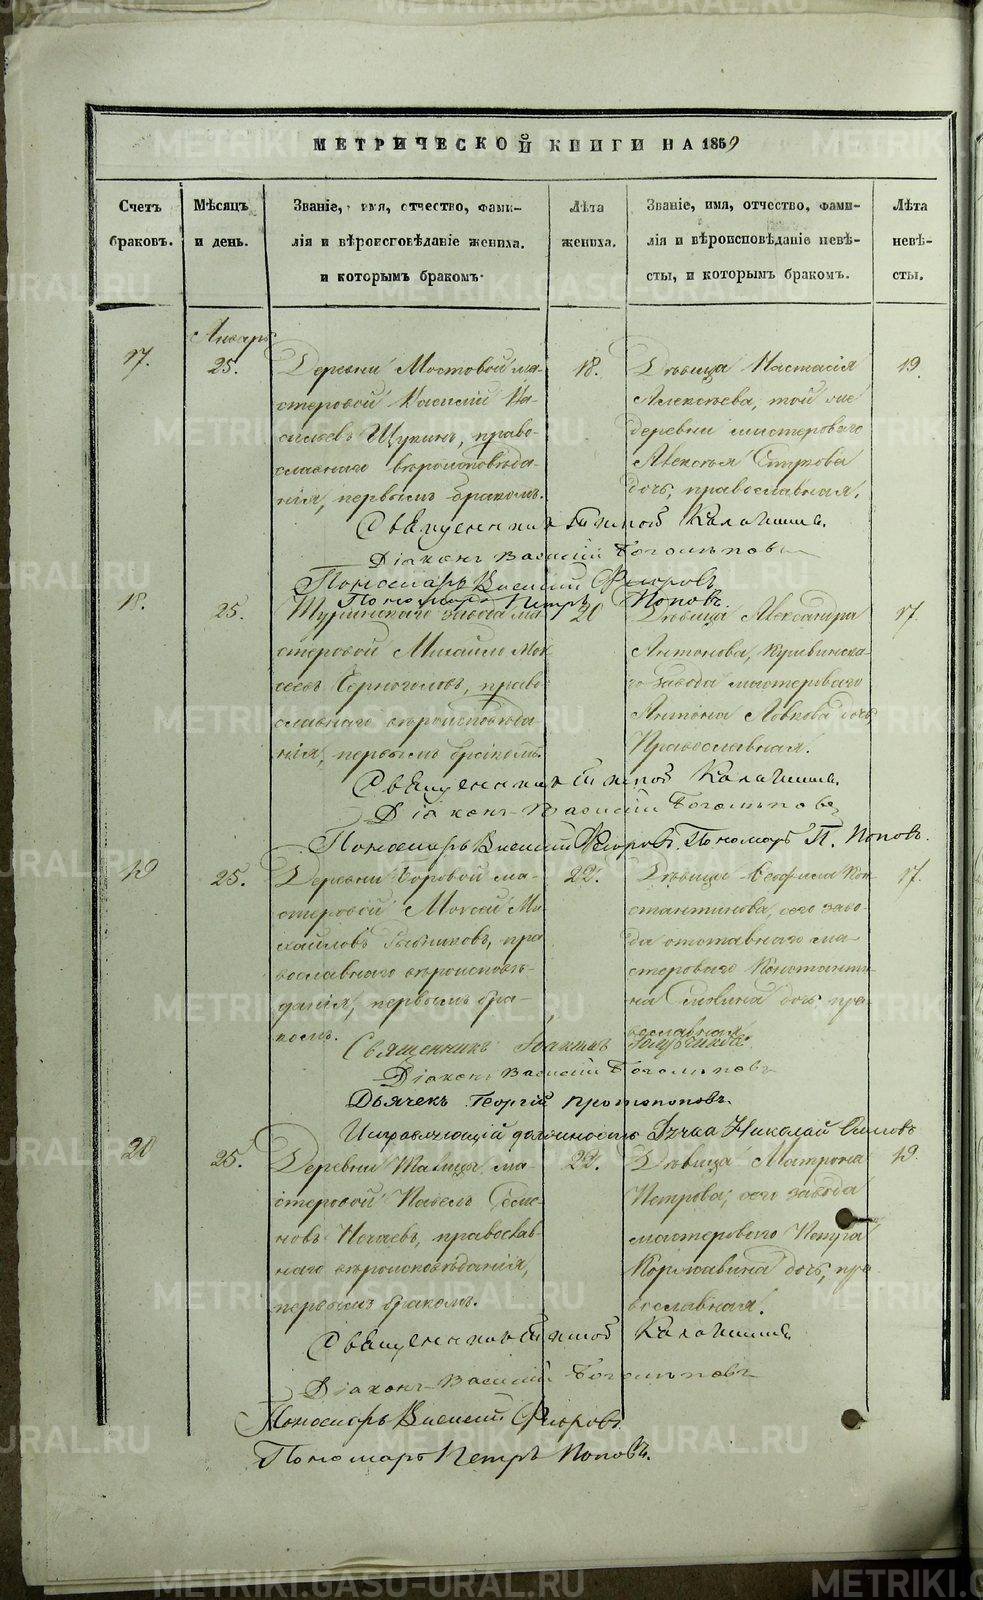 МЕТРИЧЕСКОЙ КНИГИ НА 1859
Счетъ браковъ.
Мѣсяцъ и день.
Званіе, имя, отчество, фами-
лія и вѣроисповѣданіе жениха.
и которымъ бракомъ.
Лѣта жениха.
Званіе, имя, отчество, фами-
лія и вѣроисповѣданіе невѣ-
сты, и которымъ бракомъ.
Лѣта невѣ-
сты.
Январь
17.
25.
Деревни Мостовой ма-
стеровой Василій Ва-
сильевъ Щукинъ, право-
славнаго вѣроисповѣда-
нія, первымъ бракомъ.
18.
Дѣвица Настасія
Алексѣева, той же
деревни мастероваго
Алексѣя
дочь, православная.
19.
Священникъ
Діаконъ Василій Боголѣповъ
Пономарь Василій Флоровъ
Пономарь Петръ Поповъ.
18.
25.
Туринскаго завода ма-
стеровой Михайло Мок
еевъ Черноголовъ, право
славнаго вѣроисповѣда
нія, первымъ бракомъ.
20
Дѣвица Александра
Антонова, Кушвинска-
го завода мастероваго
Антона дочь,
Православная.
17.
Священникъ
Діаконъ Василій Боголѣповъ
Пономарь Василій Флоровъ. Пономарь П. Поповъ.
19
25.
Деревни Боровой ма-
стеровой Моисей Ми-
хайловъ пра
вославнаго вѣроисповѣ-
данія, первымъ бра-
комъ.
22.
Дѣвица Ѳеофила Кон-
стантинова, сего заво-
да отставнаго ма-
стероваго Константи-
на дочь, пра
вославная.
17.
Священникъ Іоакимъ
Діаконъ Василій Боголѣповъ
Дьячекъ Георгій Протопоповъ
Исправляющій должность Дьячка Николай
20
25.
Деревни ма-
стеровой Павелъ Семе-
новъ Нехаевъ, православ-
наго вѣроисповѣданія,
первымъ бракомъ.
22.
Дѣвица Матрона
Петрова, сего завода
мастероваго Петра
Коржавина дочь, пра-
вославная.
19.
Священникъ
Діаконъ Василій Боголѣповъ
Пономарь Василій Флоровъ.
Пономарь Петръ Поповъ.
METRIKI.GASO-URAL.RU